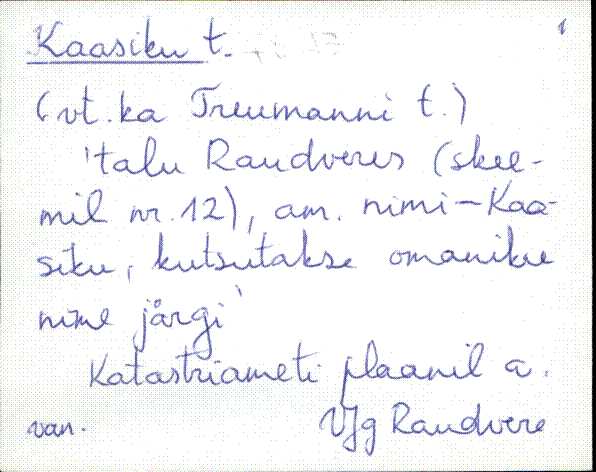 Kaasiku t.
(vt. ka Treumanni t.)
'talu Raudveres (skee-
mil nr. 12), am. nimi – Kaa-
siku, kutsutakse omaniku
nime järgi'
Katastriameti plaanil a.
van. VJg Raudvere